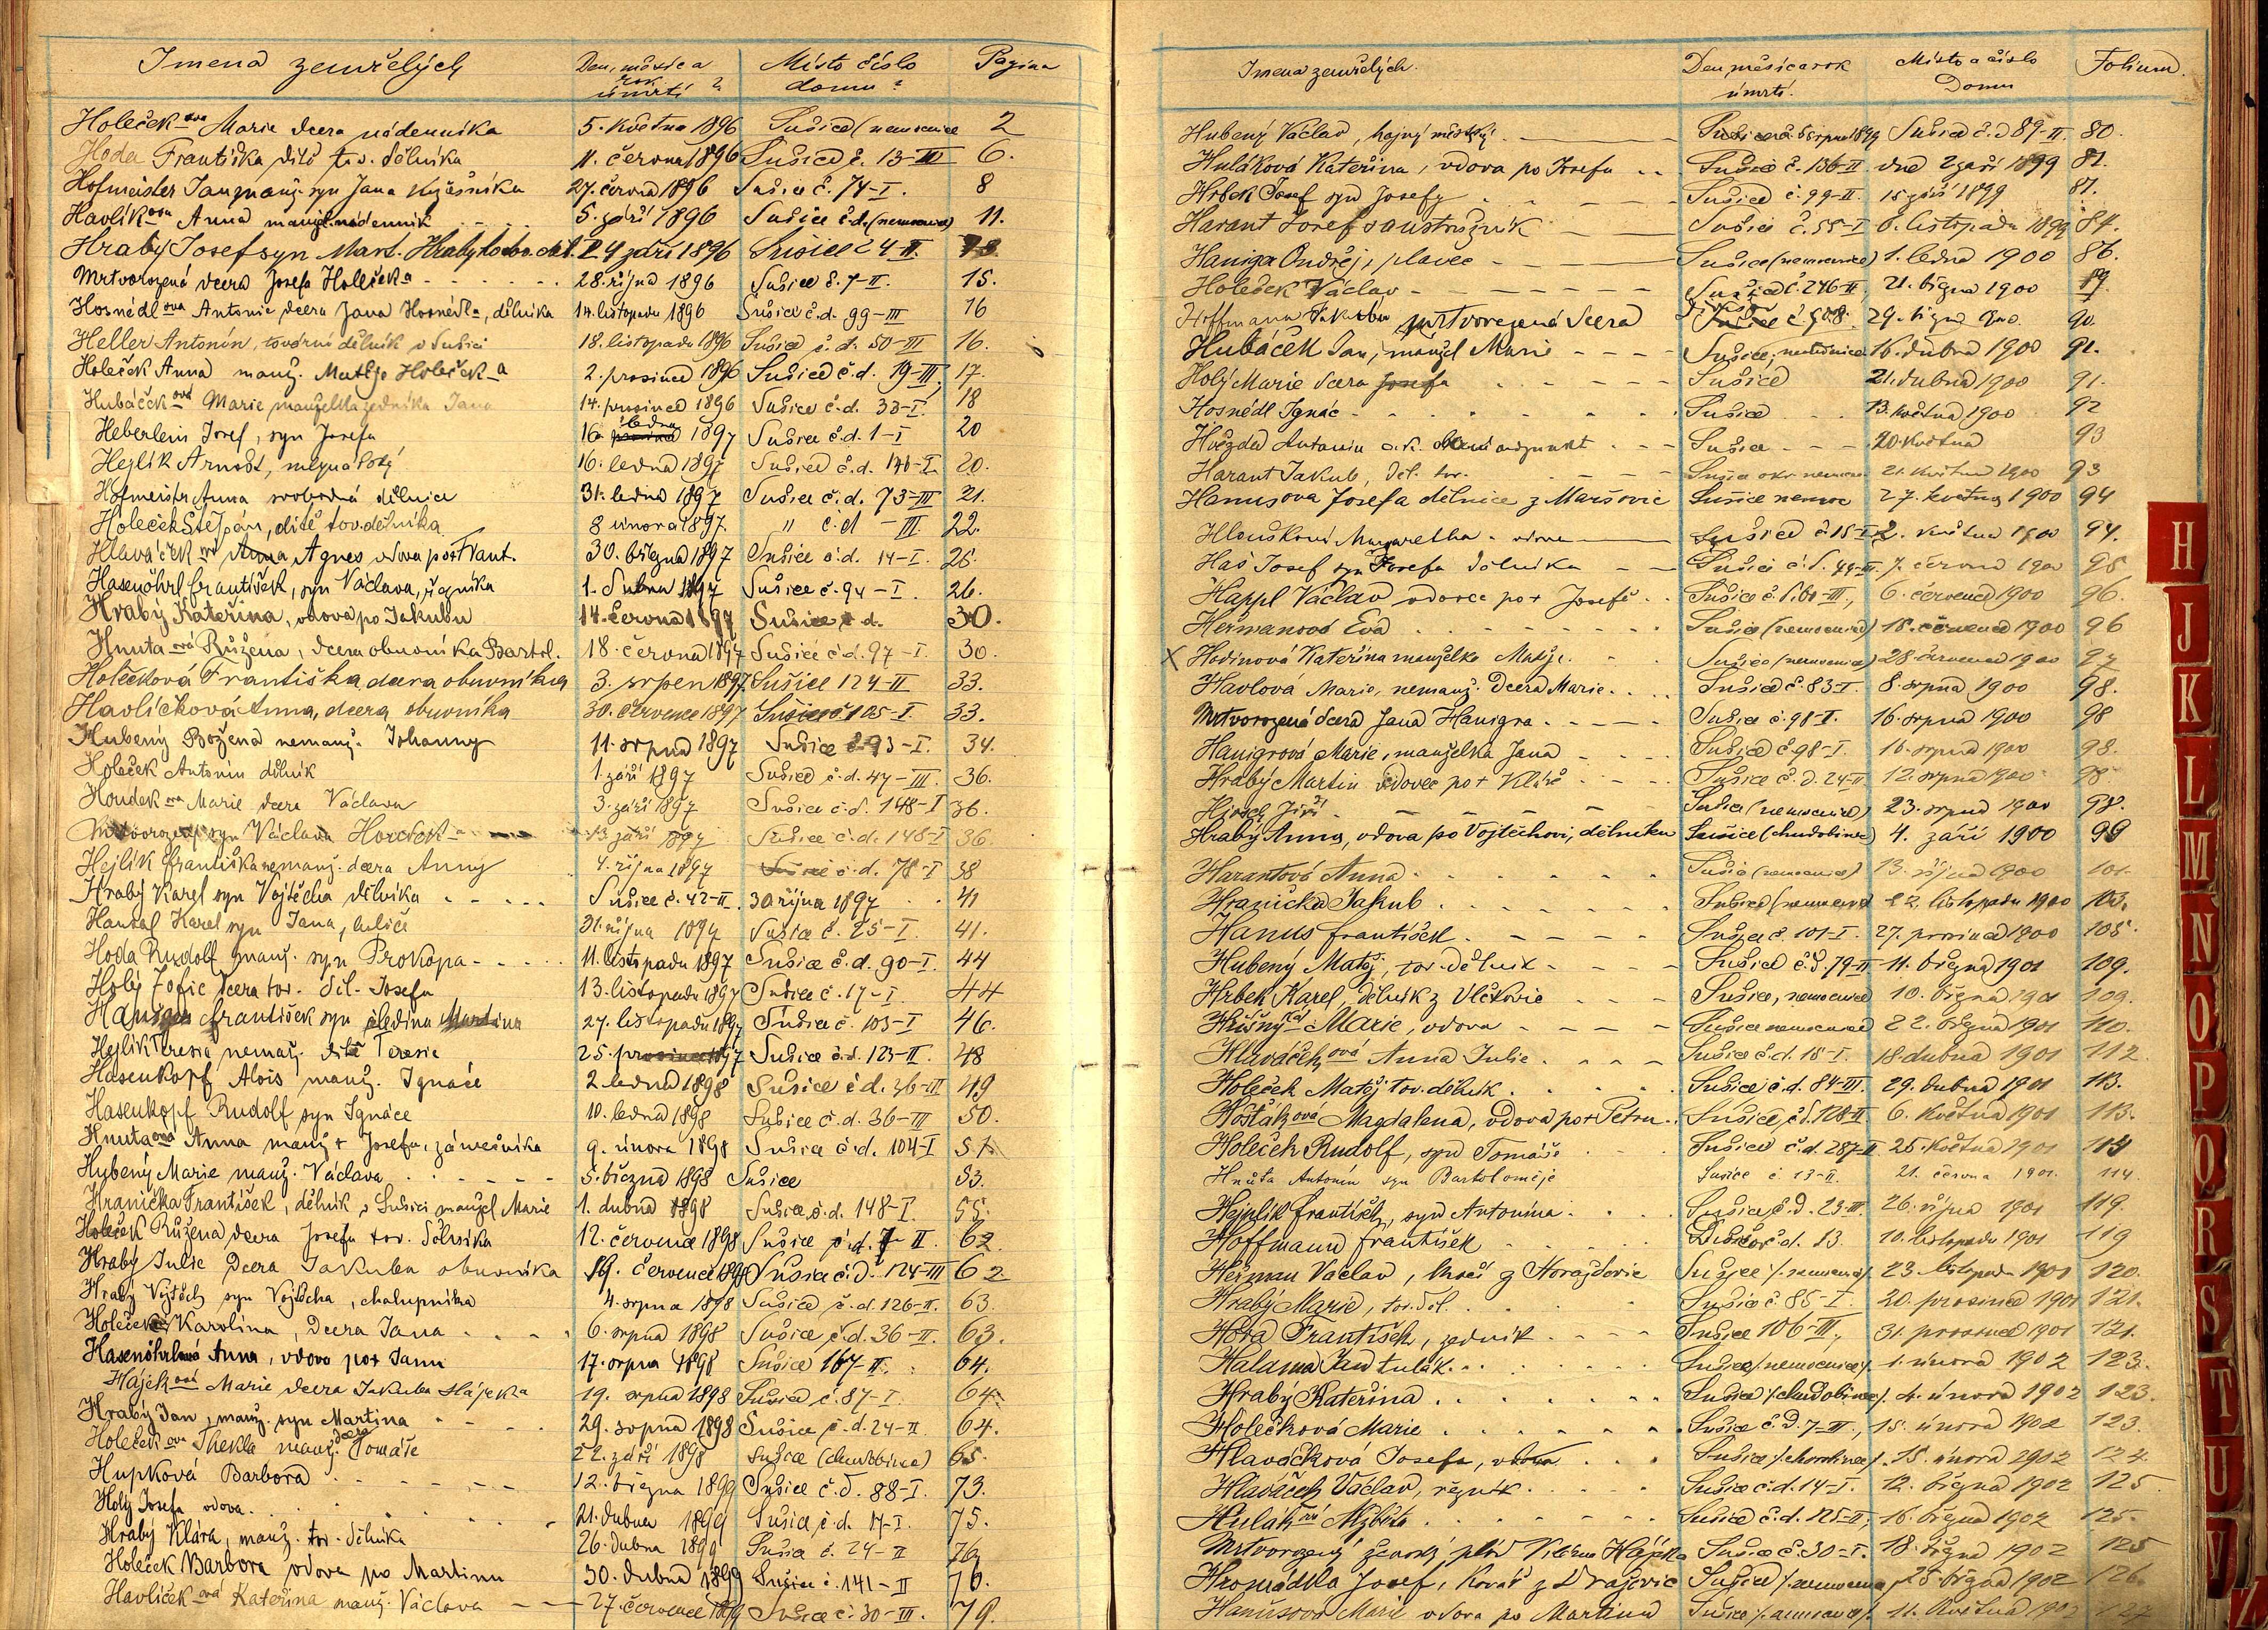 Jmena zemřelých Den, měsíc a rok úmrtí? Místo číslo domu? Pagina
Holeček ova Marie dcera nádenníka 5. května 1896 Sušice (nemocnice 2
Hoda Františka dítě tov. dělníka 11. června 1896 Sušice č. 13-III 6.
Hofmeister Jan manž. syn Jana 27. června 1896 Sušice č. 74-I. 8
Havlík ova Anna manžel. nádenník 5. září 1896 Sušice č.d. (nemocnice) 11.
Hrabý Josef syn Mart. Hrabyho 24 září 1896 Sušice 24-II.
Mrtvorozená dcera Josefa Holečka 28. října 1896 Sušice č. 7-II. 15.
Hosnédl ova Antonie dcera Jana Hosnédla, dělníka 14. listopadu 1896 Sušice č.d. 99-III 16
Heller Antonín, tovární dělník v Sušici 18. listopadu 1896 Sušice č.d. 50-III 16.
Holeček Anna manž. Matěje Holeček-a 2. prosince 1896 Sušice č.d. 19-III. 17.
Hubáček ová Marie manželka zedníka Jana 14. prosince 1896 Sušice č.d. 33-I. 18
Heberlein Josef, syn Josefa 16. ledna 1897 Sušice č.d. 1-I 20
Hejlík Arnošt, 16. ledna 1897 Sušice č.d. 146-I 20.
Hofmeistr Anna svobodná dělnice 31. ledna 1897 Sušice č.d. 73-III 21.
Holeček Štěpán, dítě tov. dělníka 8 února 1897. " č.d - III. 22.
Hlaváček ová Agnes vdova po + Frant. 30. března 1897 Sušice č.d. 14-I. 25.
Hasenöhrl František, syn Václava, řezníka 1. dubna 1897 Sušice č. 94-I. 26.
Hrabý Kateřina, vdova po Jakubu 14. června 1897 Sušice č.d. 30.
Hnuta ová Růžena, dcera obuvníka Bartol. 18. června 1897 Sušice č.d. 97-I. 30.
Holečková Františka dcera obuvníka 3. srpen 1897 Sušice 124-II 33.
Havlíčková Anna, dcera obuvníka 30. července 1897 Sušice č. 105-I. 33.
Hubený Božena nemanž. Johanny 11. srpna 1897 Sušice č. 93-I. 34.
Holeček Antonín dělník 1. září 1897 Sušice č.d. 47-III. 36.
Houdek ova Marie dcera Václava 3. září 1897 Sušice č.d. 148-I 36.
Mrtvorozený syn Václava 13 září 1897 Sušice č.d. 148-I 36.
Hejlík Františka nemanž. dcera Anny 4. října 1897 č.d. 78-I 38
Hrabý Karel syn Vojtěcha dělníka Sušice č. 42-II. 30 října 1897 41
Hansal Karel syn Jana, 31. října 1897 Sušice č. 25-I. 41.
Hoda Rudolf manž. syn Prokopa 11. listopadu 1897 Sušice č.d. 90-I. 44
Holý Žofie dcera tov. děl. Josefa 13. listopadu 1897 Sušice č. 17-I 44
František syn 27. listopadu 1897 Sušice č. 103-I 46.
Hejlík Teresie nemanž. dítě Teresie 25. 1897 Sušice č.d. 123-II. 48
Hasenkopf Alois manž. Ignáce 2. ledna 1898 Sušice č.d. 36-III 49
Hasenkopf Rudolf syn Ignáce 10. ledna 1898 Sušice č.d. 36-III 50.
Hnuta ová Anna manž + Josefa, 9. února 1898 Sušice č.d. 104-I 51
Hubený Marie manž. Václava 5. března 1898 Sušice 53.
Hranička František, dělník v Sušici manžel Marie 1. dubna 1898 Sušice č.d. 148-I. 55.
Holeček Růžena dcera Josefa tov. dělníka 12. července 1898 Sušice č.d. 7 II. 62.
Hrabý Julie dcera Jakuba obuvníka 19. července 1898 Sušice č.d. 124-III 62
Hrabý Vojtěch syn Vojtěcha, chalupníka 4. srpna 1898 Sušice, č.d. 126-II. 63.
Holeček Karolina, dcera Jana 6. srpna 1898 Sušice, č.d. 36-II. 63.
Hasenöhrlová Anna, vdova po + Janu 17. srpna 1898 Sušice 167-II. 64.
Hájek ová Marie dcera Jakuba Hájeka 19. srpna 1898 Sušice, č. 87-I. 64.
Hrabý Jan, manž. syn Martina 29. srpna 1898 Sušice, č.d. 24-II 64.
Holeček ova Thekla manž. dcera Tomáše 22. září 1898 Sušice (chudobinec) 65.
Hupková Barbora 12. března 1899 Sušice č.d. 88-I. 73.
Holý Josefa vdova. 21. dubna 1899 Sušice, č.d. 17-I. 75.
Hrabý Klára, manž. tov. dělníka 26. dubna 1899 Sušice č. 24-II 76
Holeček Barbora vdova po Martinu 30. dubna 1899 Sušice č. 141-II 76.
Havlíček ová Kateřina manž. Václava 27. července 1899 Sušice č. 30-III. 79.
Jmena zemřelých. Den měsíc a rok úmrtí. Místo a číslo Domu Folium.
Hubený Václav, hajný městský. srpna 1899 Sušice č.d 89-II. 80.
Huláková Kateřina, vdova po Josefu Sušice č. 136-II. dne 2 září 1899 81.
Hrbek Josef syn Josefy Sušice č. 99-II. 15 září 1899 81.
Harant Josef soustružník Sušice č. 55-I 6. listopadu 1899 84.
Haniga Ondřej, plavec Sušice (nemocnice) 1. ledna 1900 86.
Holeček Václav Sušice č. 246-II, 21. března 1900 89.
Hoffmanna Jakuba mrtvorozená dcera 29. března 1900. 90.
Hubáček Jan, manžel Marie Sušice, nemocnice 16. dubna 1900 91.
Holý Marie dcera Josefa Sušice 21. dubna 1900 91.
Hosnédl Ignác Sušice 13. května 1900 92
Hvězda Antonín c.k. adjunkt Sušice 20. května 93
Harant Jakub, děl. tov. Sušice okr. nemocn. 21. května 1900 93
Hanusova Josefa dělnice z Maršovic Sušice nemoc 27. května 1900 94
Hloušková Margaretha vdova Sušice č. 15-I 2. května 1900 94.
Haš Josef syn Josefa dělníka Sušice č.d. 44-III. 7. června 1900 95
Happl Václav vdovec po + Josefě Sušice č.d. 80-III, 6. července 1900 96.
Heřmanová Eva Sušice (nemocnice) 18. července 1900 96
X Hodinová Kateřina manželka Matěje. Sušice (nemocnice) 28. července 1900 97
Havlová Marie, nemanž. dcera Marie. Sušice č. 83-I. 8. srpna 1900 98.
Mrtvorozená dcera Jana Hanigra Sušice č. 98-I. 16. srpna 1900 98
Hanigrová Marie, manželka Jana Sušice č. 98-I. 16. srpna 1900 98.
Hrabý Martin vdovec po + Kláře Sušice č.d. 24-II 12. srpna 1900 98
Hirsch Jiří Sušice (nemocnice) 23. srpna 1900 98.
Hrabý Anna, vdova po Vojtěchovi, dělníku Sušice (chudobinec) 4. září 1900 99
Harantová Anna Sušice (nemocnice) 13. října 1900 101.
Hranička Jakub Sušice (nemocnice) 22. listopadu 1900 103.
Hanus František Sušice č. 101-I. 27. prosince 1900 105.
Hubený Matěj, tov. dělník Sušice č.d. 79-II 11. března 1901 109.
Hrbek Karel, dělník z Vlčkovic Sušice, nemocnice 10. března 1901 109.
Hříšný ná Marie, vdova Sušice nemocnice 22. března 1901 110.
Hlaváček ová Anna Julie Sušice č.d. 18-I. 18. dubna 1901 112.
Holeček Matěj tov. dělník Sušice č.d. 84-III. 29. dubna 1901 113.
Hošták ová Magdalena, vdova po + Petru Sušice, č.d. 128-II. 6. května 1901 113.
Holeček Rudolf, syn Tomáše Sušice č.d. 287-II 25. května 1901 114
Hnůta Antonín syn Bartoloměje Sušice č. 13-II. 21. června 1901. 114
Hejplik František, syn Antonína Sušice č.d. 23-III. 26. října 1901 119.
Hoffmann František č.d. 13. 10. listopadu 1901 119
Heřman Václav, z Horažďovic Sušice /. nemocnice/. 23. listopadu 1901 120.
Hrabý Marie, tov. děl. Sušice č 85-I. 20. prosince 1901 121.
Hora František, zedník Sušice 106-III, 31. prosince 1901 121.
Halama Jan tulák Sušice /. nemocnice/. 1. února 1902 123.
Hrabý Kateřina Sušice /. chudobinec/. 4. února 1902 123.
Holečková Marie Sušice č.d. 7-II, 15. února 1902 123.
Hlaváčková Josefa, vdova Sušice /. chorobinec/. 15. února 1902 124.
Hlaváček Václav, řezník Sušice č.d. 14-I. 12. března 1902 125
Hulák ová Alžběta Sušice č.d. 125-II, 16. března 1902 125.
Mrtvorozený ženský plod Viléma Hájka Sušice č. 30-I. 18. března 1902 125
Hromádka Josef, kovář z Dražovic Sušice /. nemocnice 25. března 1902 126.
Hanusova Marie vdova po Martinu Sušice /. nemocnice/. 11. května 1902 127
H
J
K
L
M
N
O
P
Q
R
S
T
U
V
Z